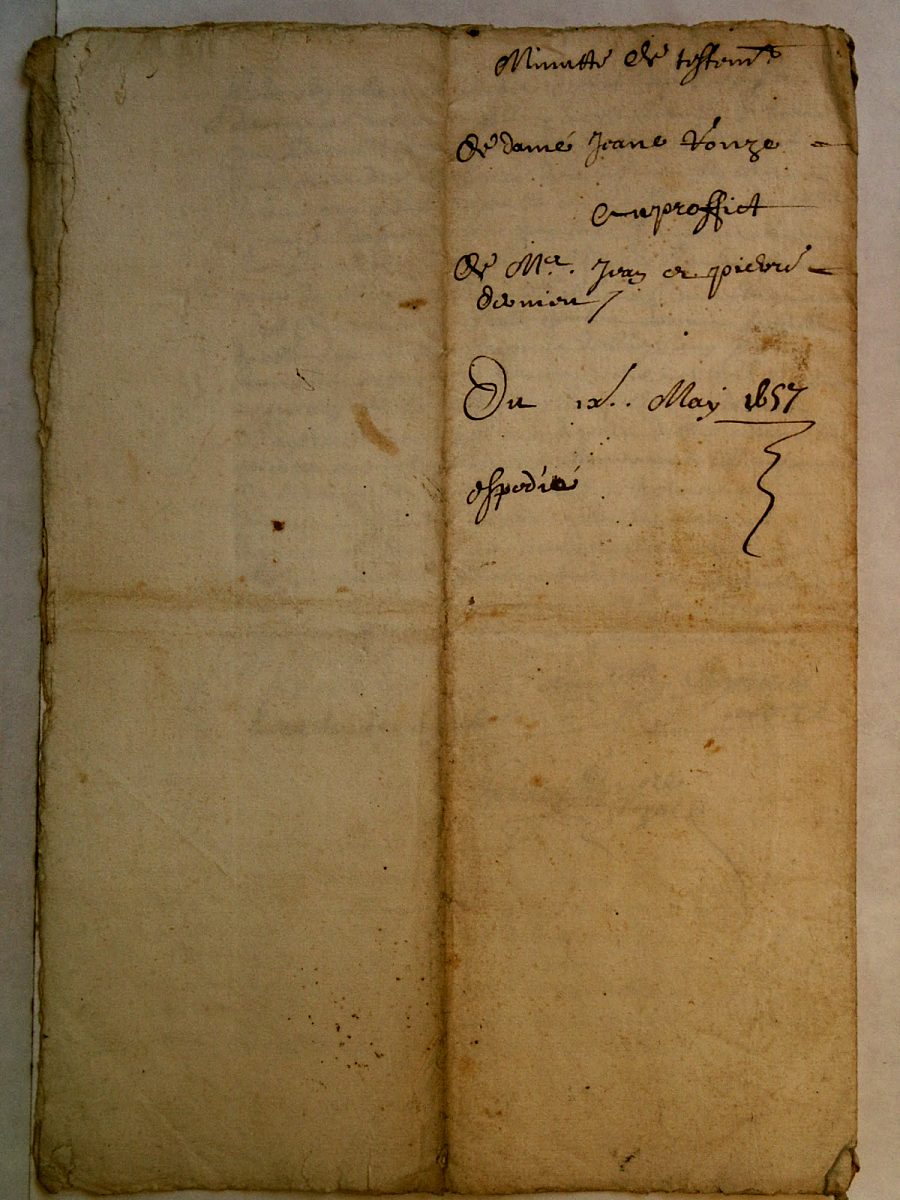 Minutte de testemt
de dame Jeane Ronze
en proffict
de Mre. Jean et pierre
Du ix. May 1657
expedié